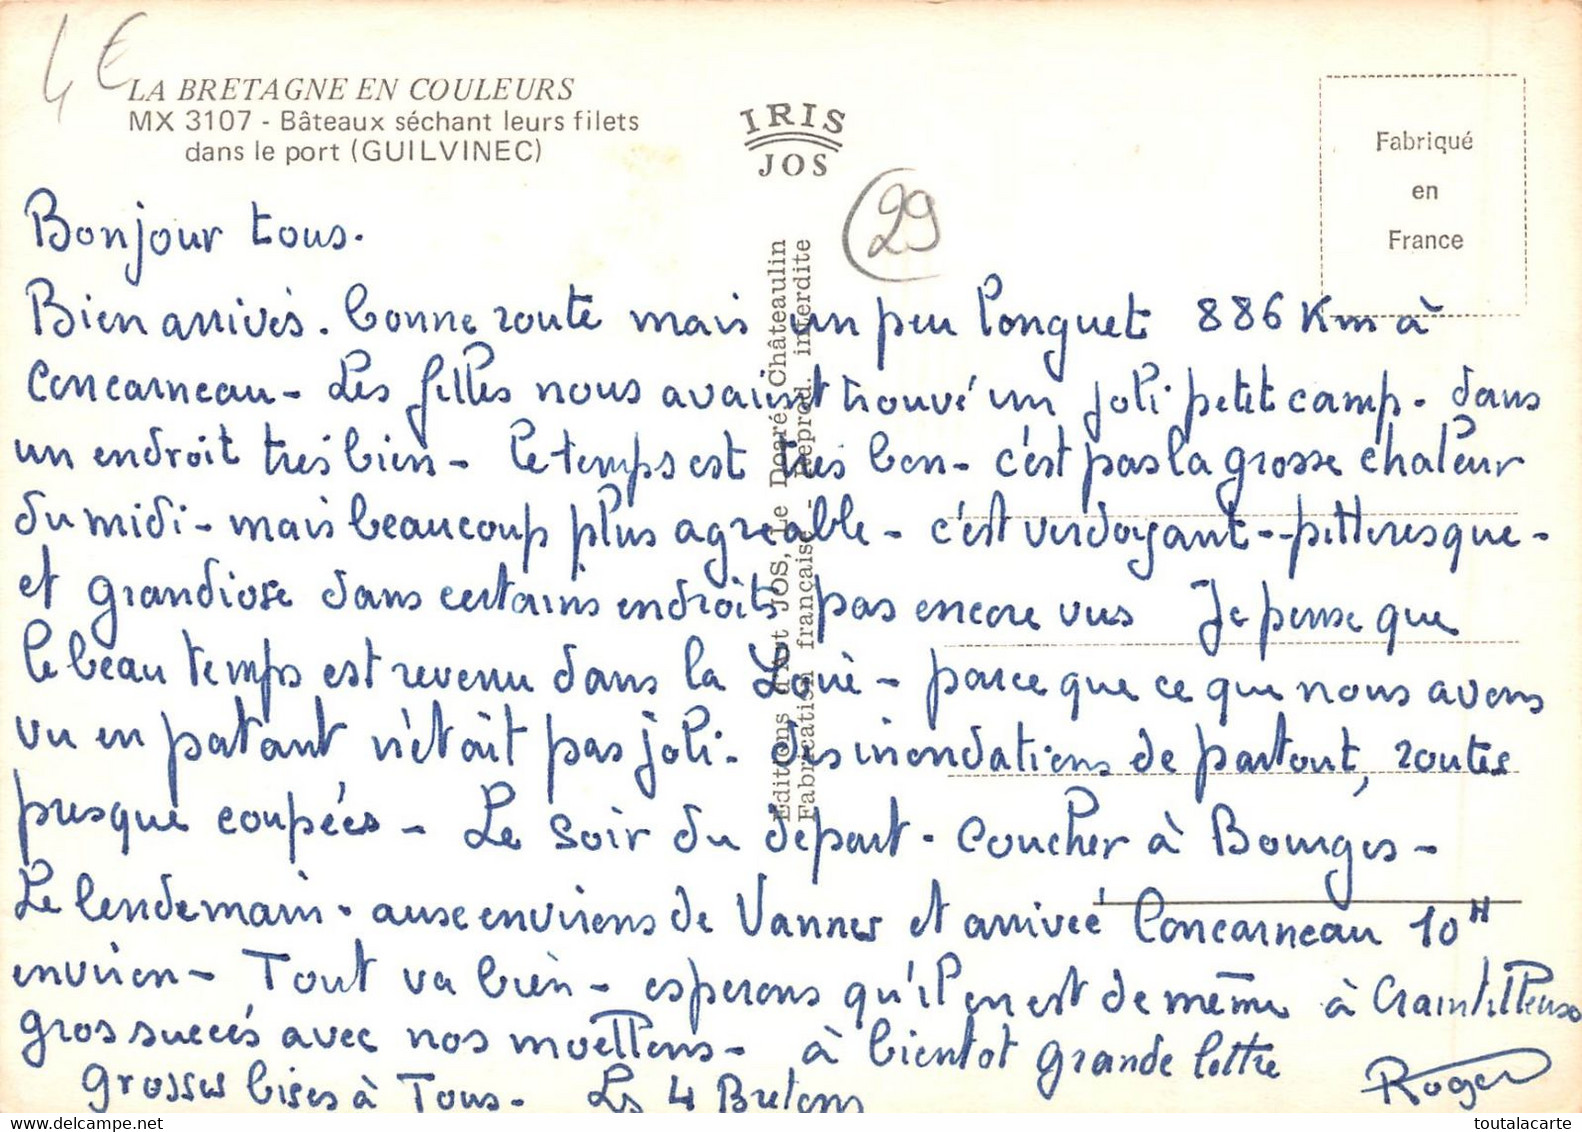 4€
LA BRETAGNE EN COULEURS
MX 3107 - Bâteaux séchant leurs filets
dans le port (GUILVINEC)
IRIS
JOS
29
Fabriqué
en
France
Editions d'Art JOS, Le Doaré, Châteaulin
Fabrication française - Reprod. interdite
Bonjour tous.
Bien arrivés. bonne route mais un peu longuet 886 Km à
Concarneau - Les filles nous avaient trouvé un joli petit camp - dans
un endroit très bien - le temps est très bon - c'est pas la grosse chaleur
du midi - mais beaucoup plus agréable - c'est verdoyant - pittoresque -
et grandiose dans certains endroits pas encore vus Je pense que
le beau temps est revenu dans la Loire - parce que ce que nous avons
vu en patant n'était pas joli - des inondations de partout, routes
presque coupées - Le soir du départ - coucher à Bourges -
Le lendemain - aux environs de Vannes et arrivée Concarneau 10H
environ - Tout va bien - esperons qu'il en est de même à Craintilleux
gros succés avec nos moellons - à bientot grande lettre
grosses bises à Tous - Les 4 Bretons
Roger
toutalacarte